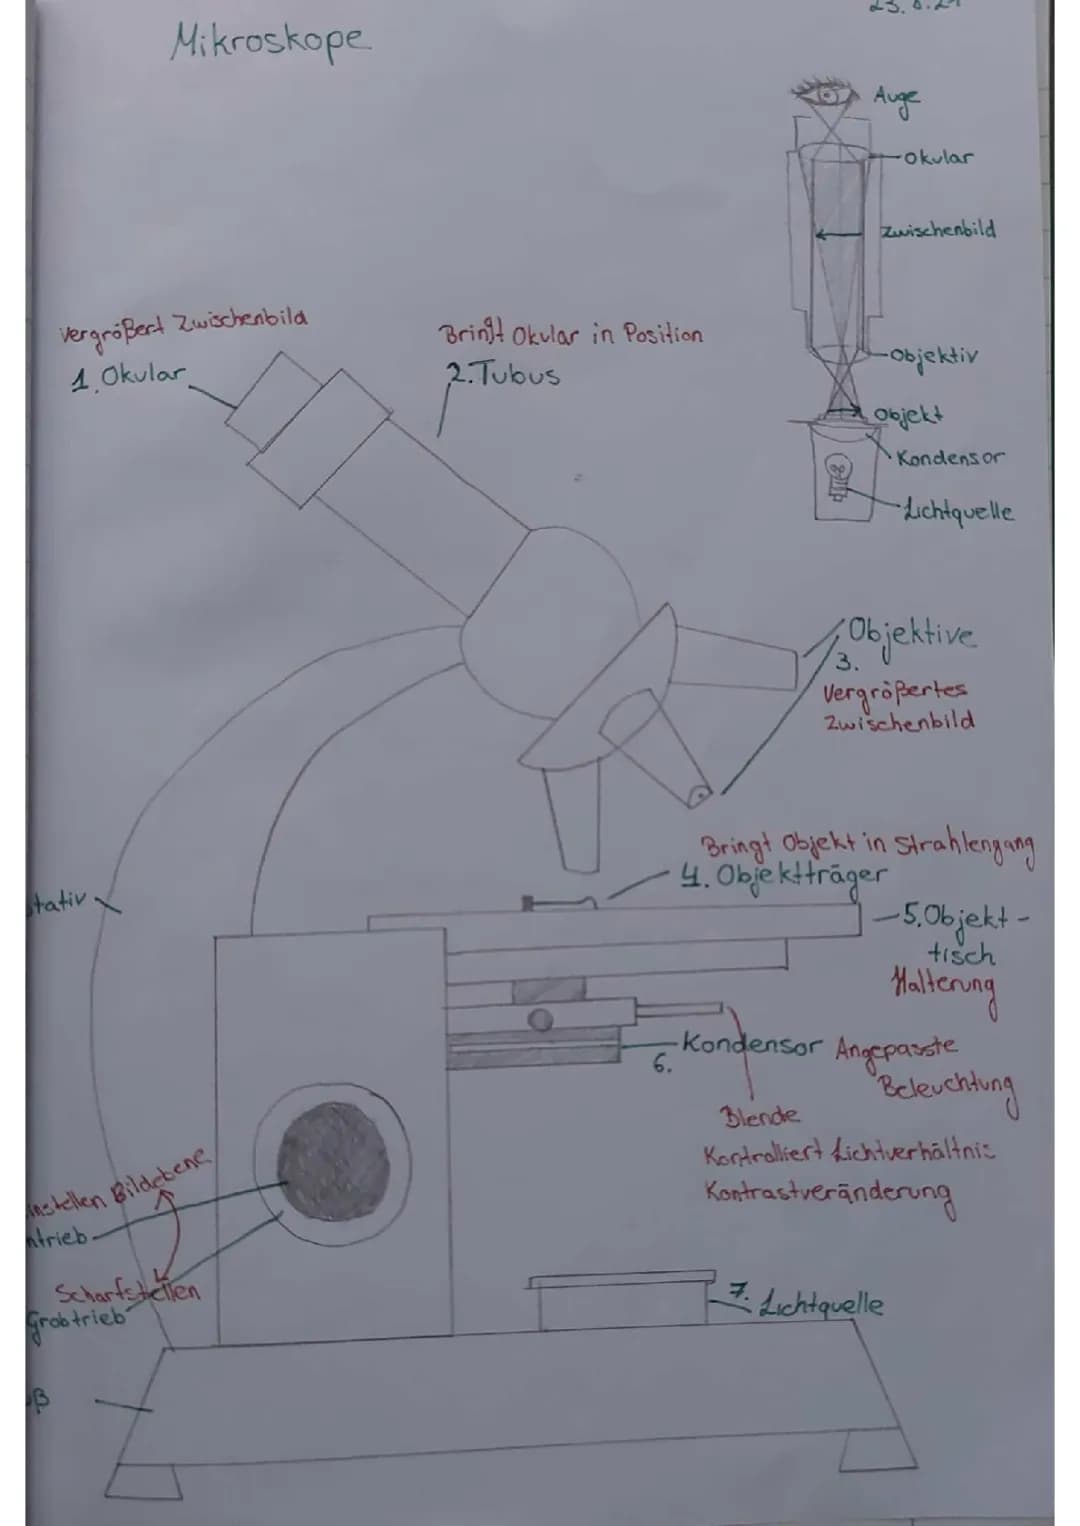 Mikroskope
Auge
Okular
Zwischenbild
Objektiv
Objekt
Kondensor
Lichtquelle
Vergrößert Zwischenbild
1. Okular
Bringt Okular in Position
2. Tubus
Objektive
3.
Vergrößertes
Zwischenbild
Bringt Objekt in Strahlengang
4. Objektträger
5. Objekt-
tisch
Halterung
tativ
Kondensor Angepasste
6.
Beleuchtung
Blende
Kontrolliert Lichtverhältnis
Kontrastveränderung
instellen Bildebene
ntrieb
Scharfstellen
Grobtrieb
7. Lichtquelle
ß